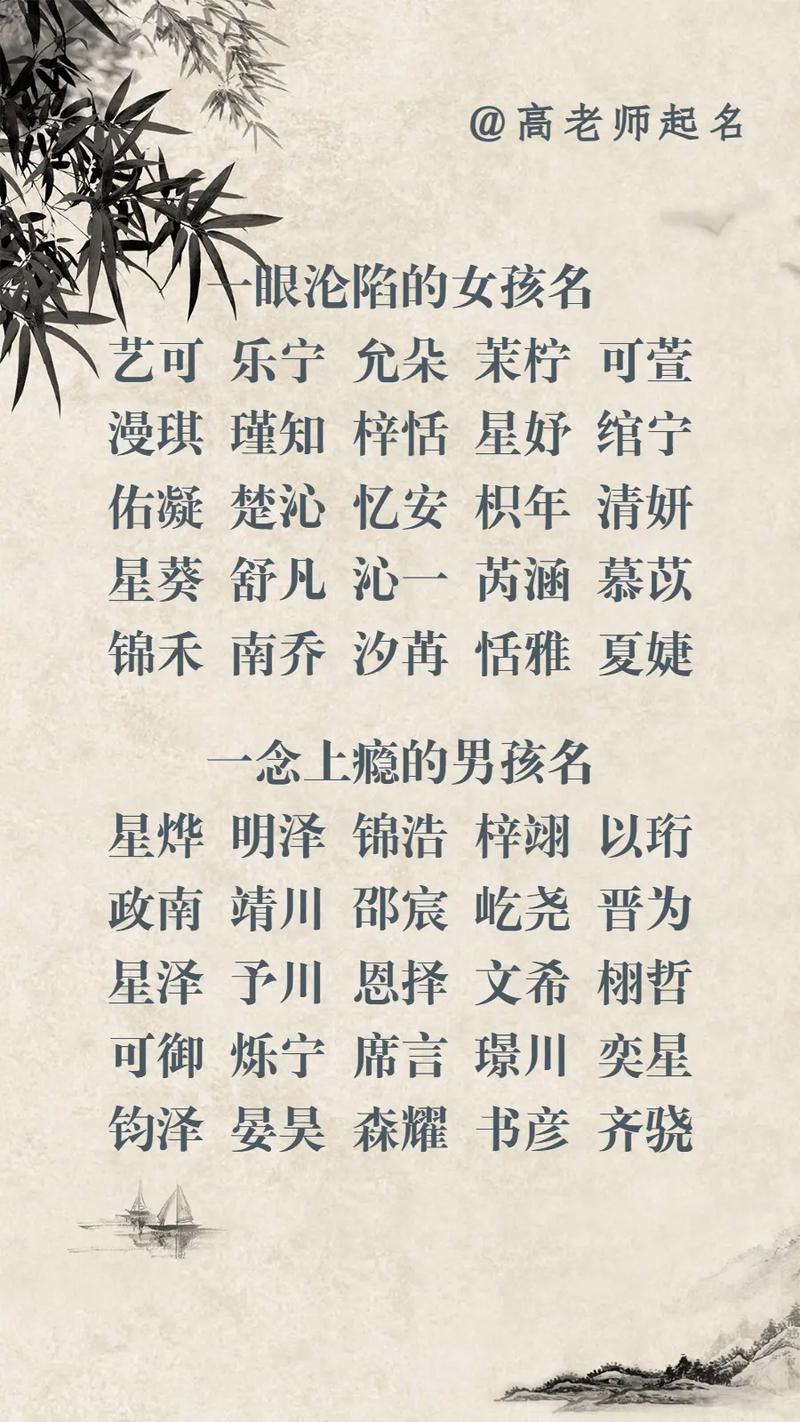 @高老师起名
一眼沦陷的女孩名
艺可 乐宁 允朵 茉柠 可萱
漫琪 瑾知 梓恬 星妤 绾宁
佑凝 楚沁 忆安 枳年 清妍
星葵 舒凡 沁一 芮涵 慕苡
锦禾 南乔 汐苒 恬雅 夏婕
一念上瘾的男孩名
星烨 明泽 锦浩 梓翊 以珩
政南 靖川 邵宸 屹尧 晋为
星泽 予川 恩择 文希 栩哲
可御 烁宁 席言 璟川 奕星
钧泽 晏昊 森耀 书彦 齐骁